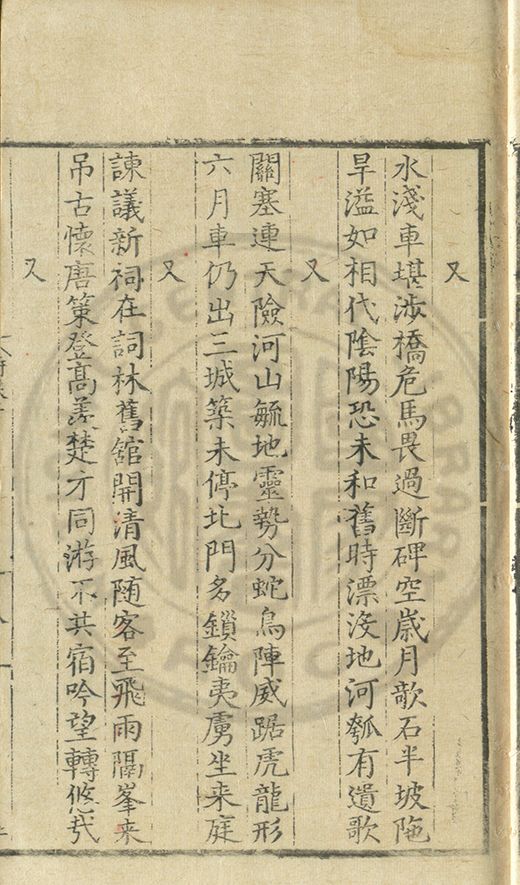 又
水淺車堪涉橋危馬畏過斷碑空歲月欹石半坡陁
旱溢如相代陰陽恐未和舊時漂沒地河瓠有遺歌
又
關塞連天險河山毓地靈勢分蛇鳥陣威踞虎龍形
六月車仍出三城築未停北門多鎖鑰夷虜坐来庭
又
諫議新祠在詞林舊舘開清風随客至飛雨隔峯来
吊古懷唐策登髙羡楚才同游不共宿吟望轉悠㢤
又